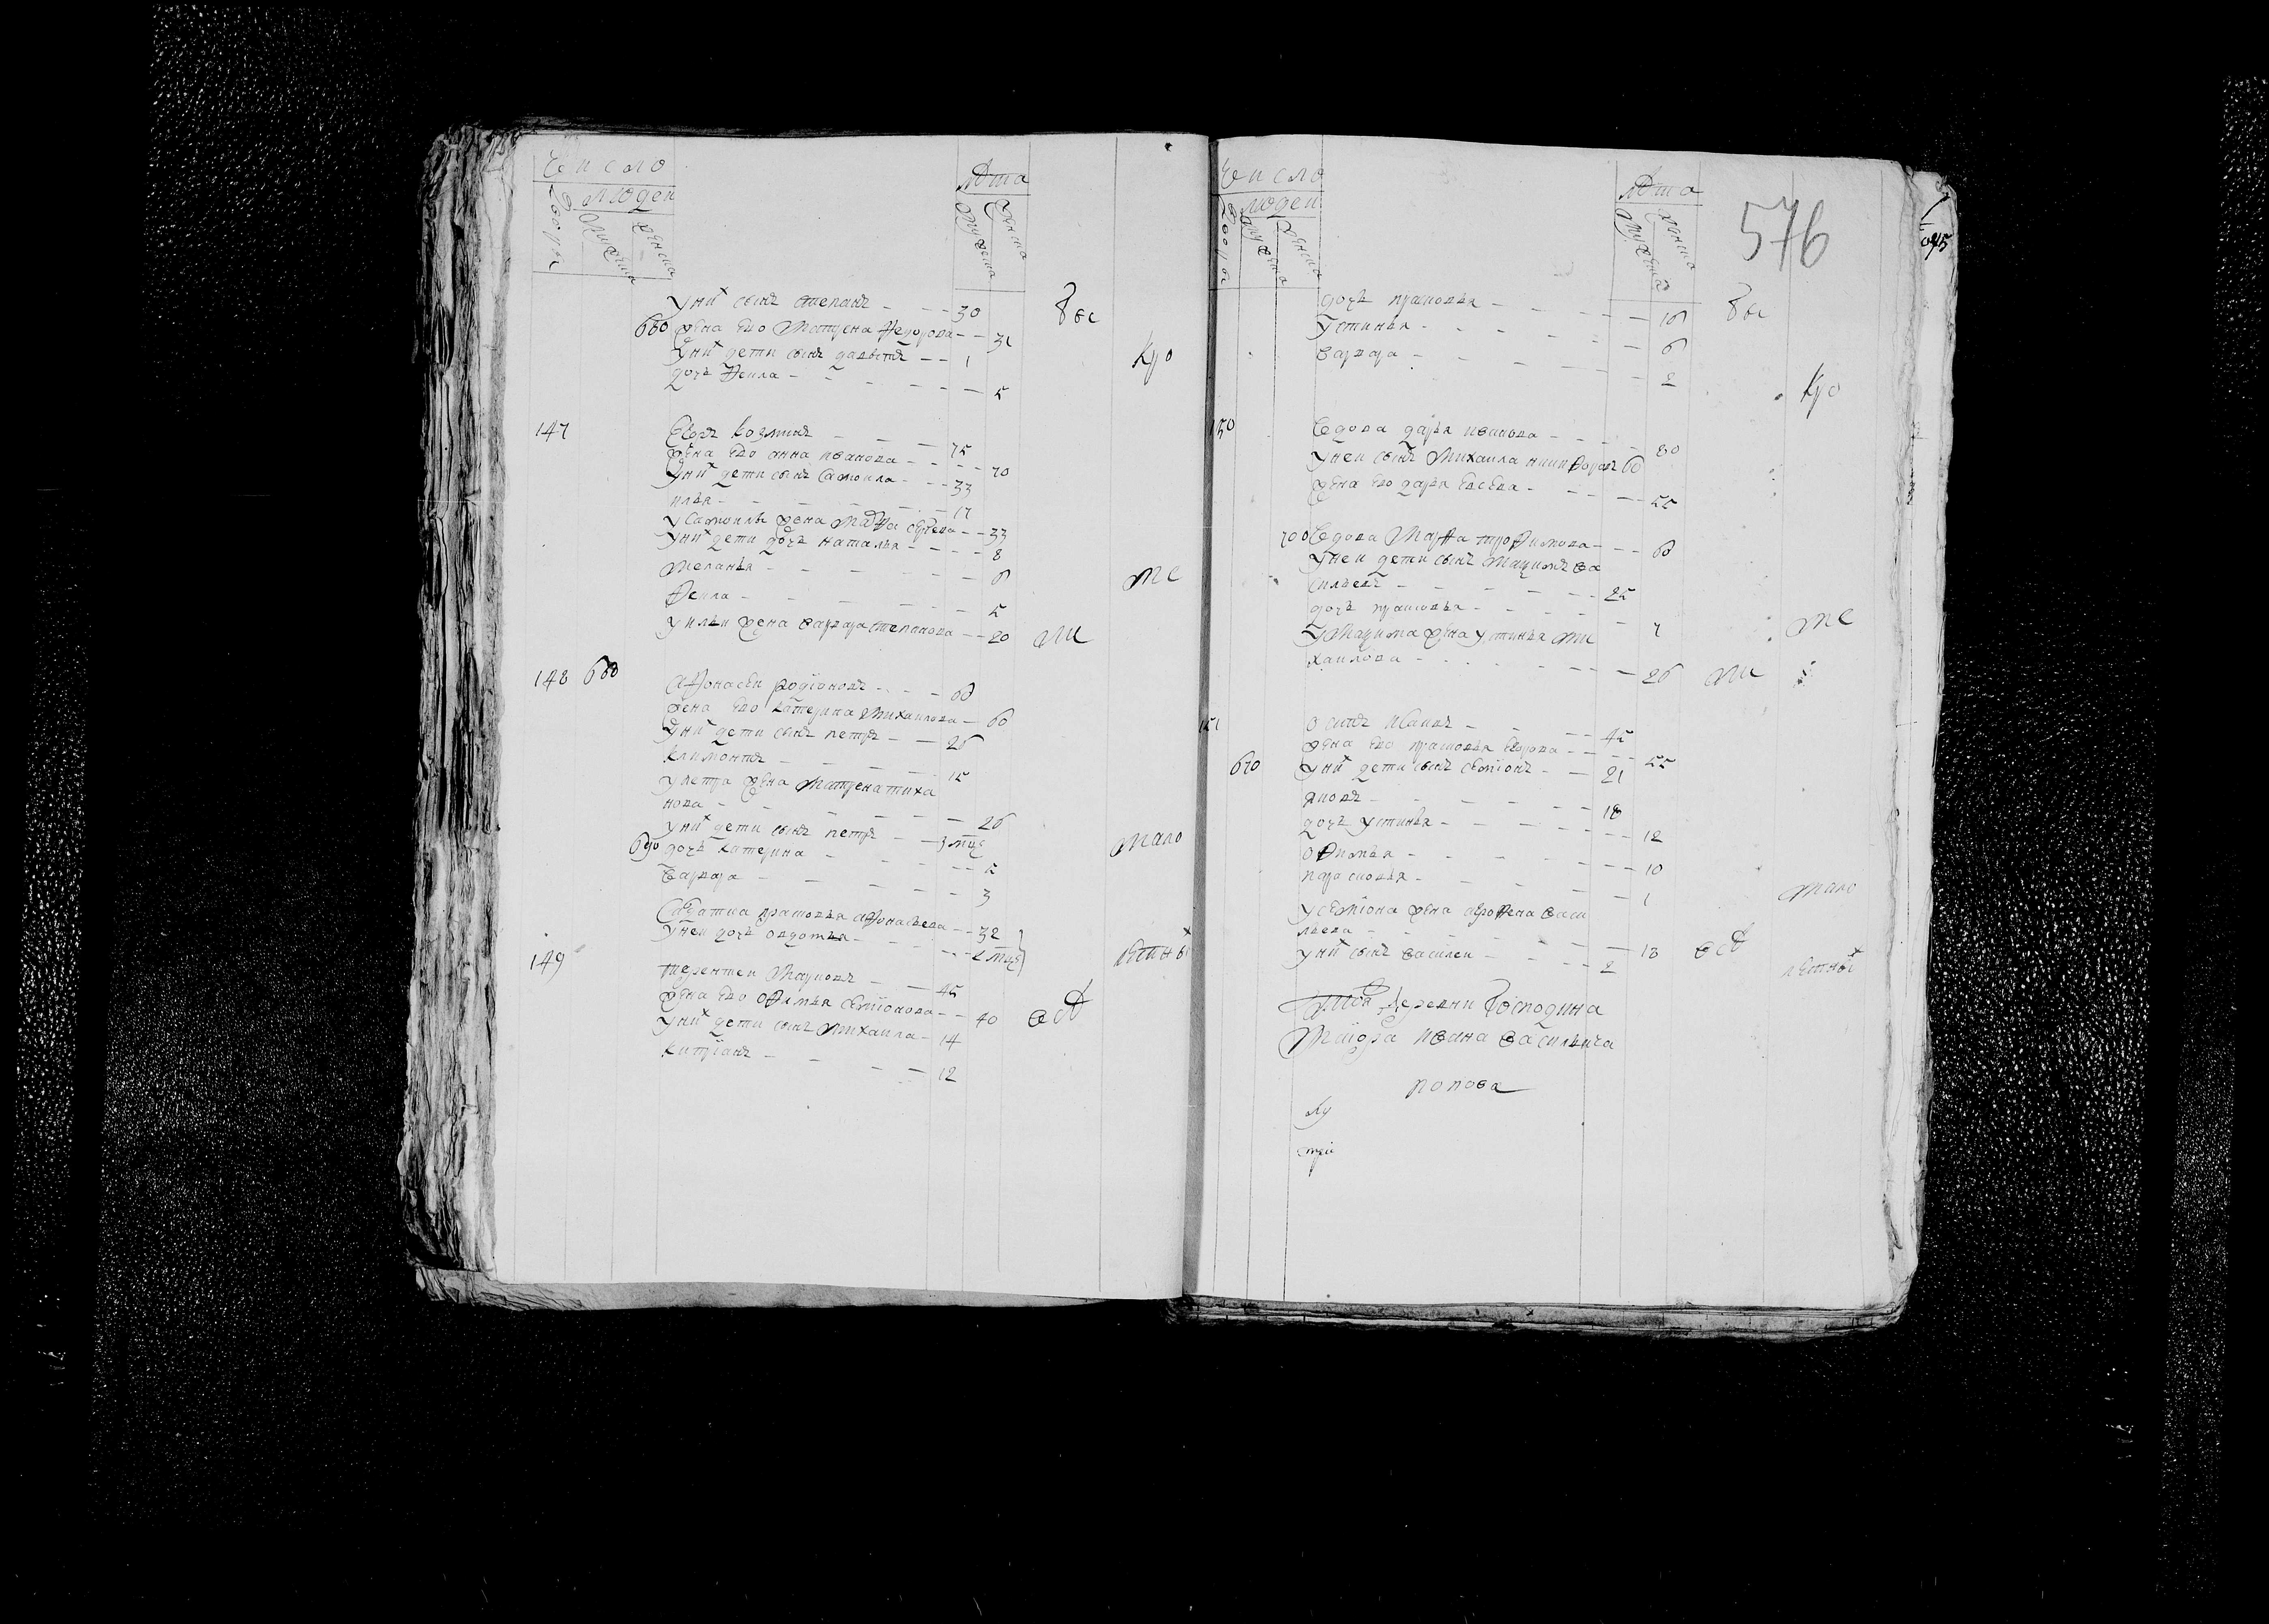 Число
людеи
дворы
мужеска
женска
лѣта
мужеска
женска
у них сынъ степанъ 30
660 жена ево матрена федорова 31
у них дети сынъ давыдъ 1
дочь фекла 5
все
кро
147 егоръ козминъ 75
жена ево анна иванова 70
у них дети сынъ самоила 33
илья 17
у самоилы жена марфа сергеева 33
у них дети дочь наталья 8
меланья 6
фекла 5
у ильи жена варвара степанова 20
ме
ли
148 680 афонасеи родїоновъ 60
жена ево катерина михаилова 60
у них дети сынъ петръ 26
климонтъ 15
у петра жена матрена тиха
нова 26
у них дети сынъ петръ 3 мцъ
690 дочь катерина 5
варвара 3
салдатка прасковья афонасьева 32
у неи дочь овдотья 2 мцъ
мало
летных
149 терентеи марковъ 45
жена ево офимья семїонова 40
у них дети сынъ михаила 14
киприанъ 12
всѣ
Число
людеи
дворы
мужеска
женска
лѣта
мужеска
женска
576
дочь прасковья 10
устинья 6
варвара 2
все
кро
150 вдова дарья иванова 80
у неи сынъ михаила никифоровъ 60
жена ево дарья евсеева 55
700 вдова марфа трофимова 60
у неи дети сынъ максимъ ва
сильевъ 25
дочь прасковья 7
у максима жена устинья ми
хаилова 26
ме
ли
151 осипъ исаивъ 45
жена ево прасковья егорова 55
у них дети сынъ семїонъ 21
яковъ 18
дочь устинья 12
офимья 10
парасковья 1
у семїона жена агрофена васи
льева 18
у них сынъ василеи 2
мало
всѣ
летных
тои деревни господина
маїора ивана васильича
попова